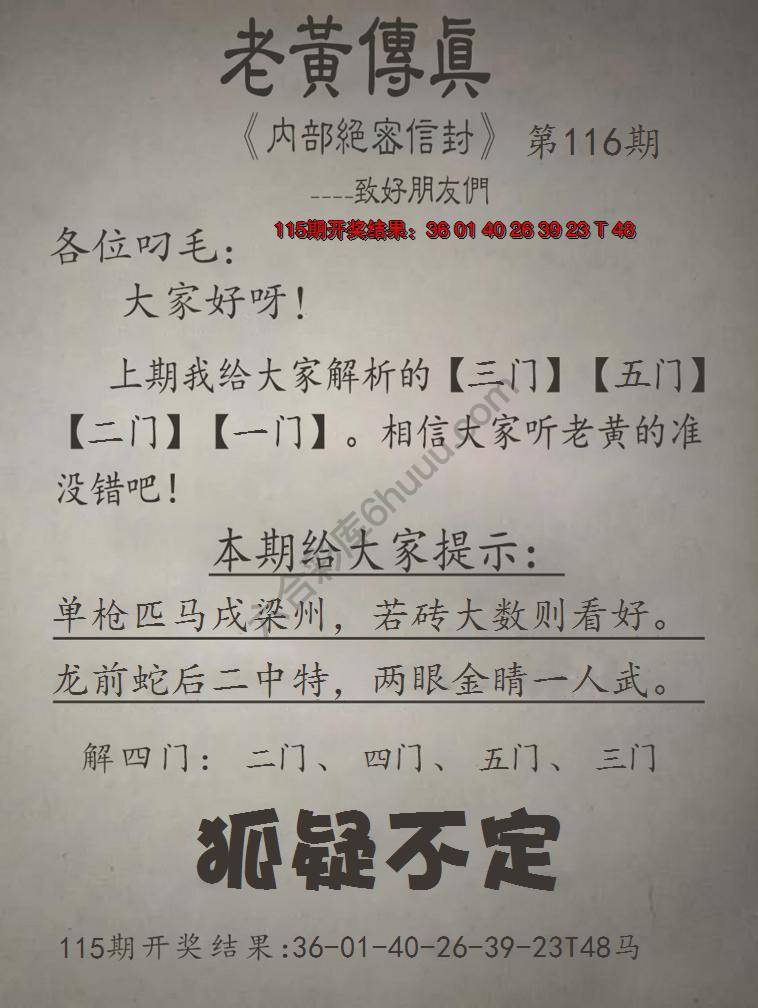 老黃傳眞
《内部絕密信封》 第116期
----致好朋友們
115期开奖结果：36 01 40 26 39 23 T 48
各位叼毛：
大家好呀！
上期我给大家解析的【三门】【五门】
【二门】【一门】。相信大家听老黄的准
没错吧！
本期给大家提示：
单枪匹马戌梁州，若砖大数则看好。
龙前蛇后二中特，两眼金睛一人武。
解四门： 二门、 四门、 五门、 三门
狐疑不定
115期开奖结果:36-01-40-26-39-23T48马
六合彩库6huuu.com